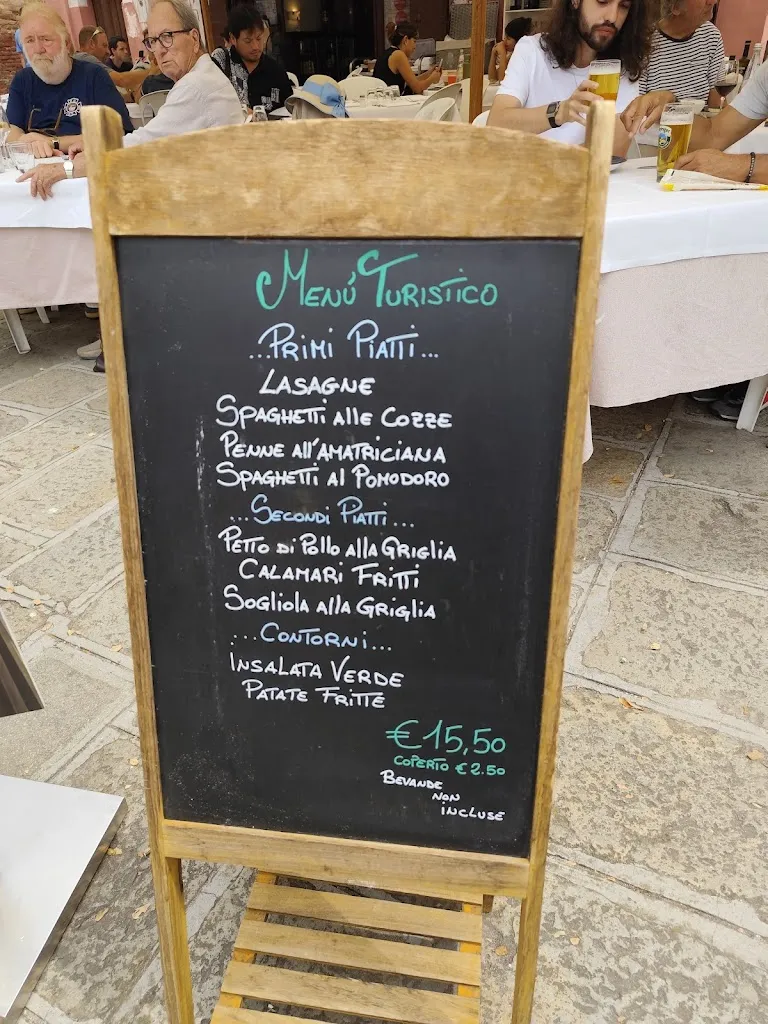 Menú Turistico
...Primi Piatti...
Lasagne
Spaghetti alle Cozze
Penne all'Amatriciana
Spaghetti al Pomodoro
...Secondi Piatti...
Petto di Pollo alla Griglia
Calamari Fritti
Sogliola alla Griglia
...Contorni...
Insalata Verde
Patate Fritte
€ 15,50
Coperto € 2.50
Bevande
non
incluse